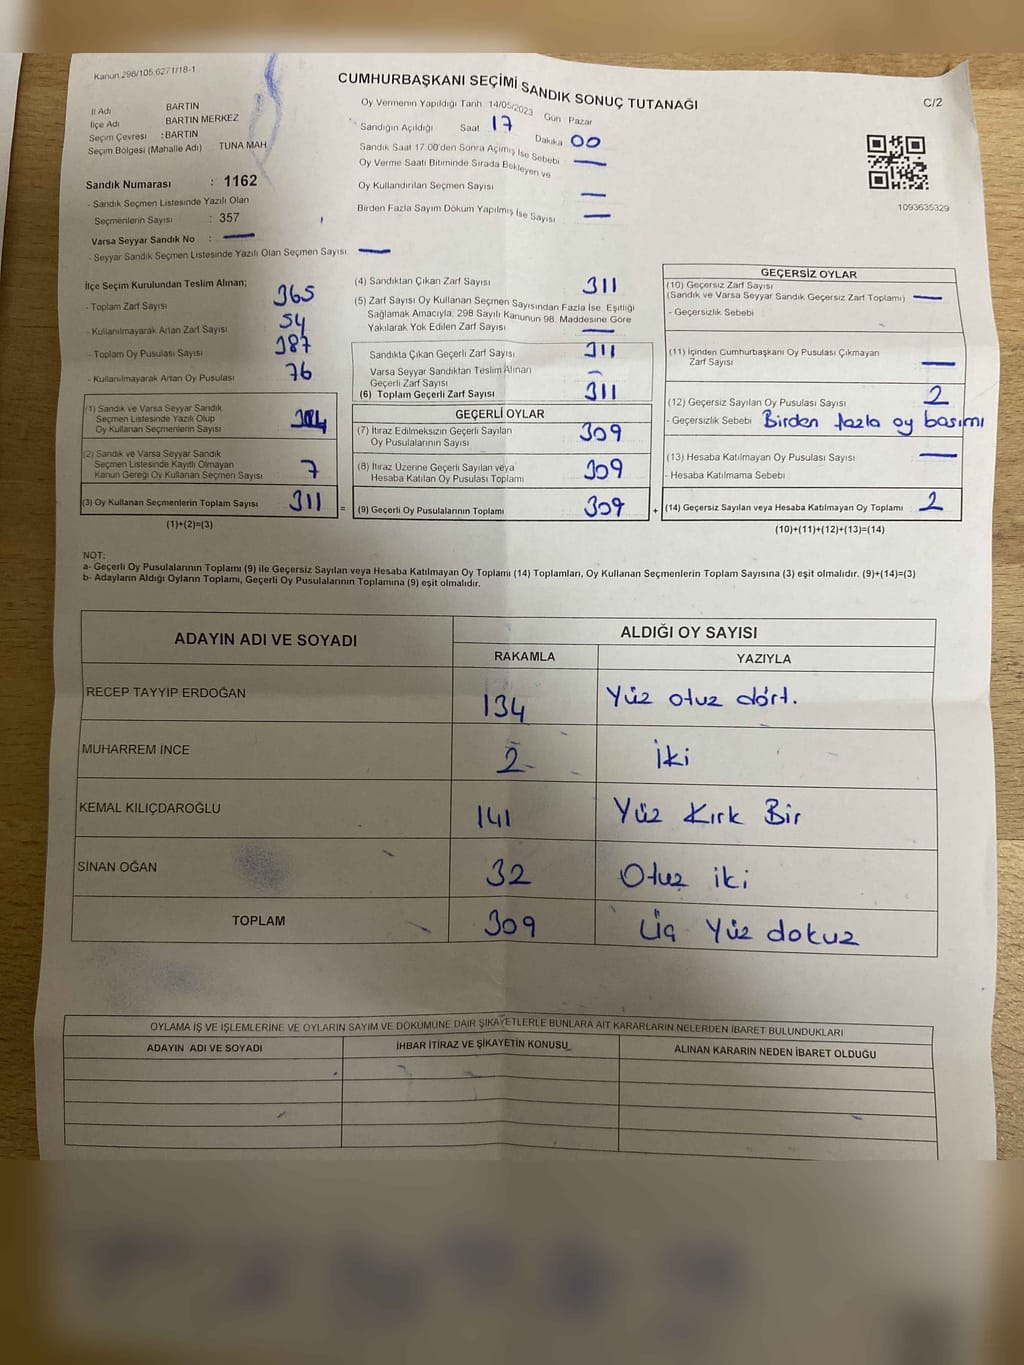 Kanun 298/105.6271/18-1
CUMHURBAŞKANI SEÇİMİ SANDIK SONUÇ TUTANAĞI
C/2
İl Adı BARTIN
İlçe Adı BARTIN MERKEZ
Seçim Çevresi :BARTIN
Seçim Bölgesi (Mahalle Adı) TUNA MAH
Sandık Numarası : 1162
- Sandık Seçmen Listesinde Yazılı Olan
Seçmenlerin Sayısı : 357
Varsa Seyyar Sandık No : —
- Seyyar Sandık Seçmen Listesinde Yazılı Olan Seçmen Sayısı —
Oy Vermenin Yapıldığı Tarih 14/05/2023 Gün Pazar
Sandığın Açıldığı Saat 17 Dakika 00
Sandık Saat 17.00'den Sonra Açımış İse Sebebi —
Oy Verme Saati Bitiminde Sırada Bekleyen ve
Oy Kullandırılan Seçmen Sayısı —
Birden Fazla Sayım Döküm Yapılmış İse Sayısı —
1093635329
İlçe Seçim Kurulundan Teslim Alınan;
- Toplam Zarf Sayısı 365
- Kullanılmayarak Artan Zarf Sayısı 54
- Toplam Oy Pusulası Sayısı 387
- Kullanılmayarak Artan Oy Pusulası 76
(1) Sandık ve Varsa Seyyar Sandık
Seçmen Listesinde Yazılı Olup
Oy Kullanan Seçmenlerin Sayısı
(2) Sandık ve Varsa Seyyar Sandık
Seçmen Listesinde Kayıtlı Olmayan
Kanun Gereği Oy Kullanan Seçmen Sayısı 7
(3) Oy Kullanan Seçmenlerin Toplam Sayısı 311 =
(1)+(2)=(3)
(4) Sandıktan Çıkan Zarf Sayısı 311
(5) Zarf Sayısı Oy Kullanan Seçmen Sayısından Fazla İse, Eşitliği
Sağlamak Amacıyla; 298 Sayılı Kanunun 98. Maddesine Göre
Yakılarak Yok Edilen Zarf Sayısı —
Sandıkta Çıkan Geçerli Zarf Sayısı 311
Varsa Seyyar Sandıktan Teslim Alınan
Geçerli Zarf Sayısı —
(6) Toplam Geçerli Zarf Sayısı 311
GEÇERLİ OYLAR
(7) İtiraz Edilmeksizin Geçerli Sayılan
Oy Pusulalarının Sayısı 309
(8) İtiraz Üzerine Geçerli Sayılan veya
Hesaba Katılan Oy Pusulası Toplamı 309
(9) Geçerli Oy Pusulalarının Toplamı 309 +
GEÇERSİZ OYLAR
(10) Geçersiz Zarf Sayısı
(Sandık ve Varsa Seyyar Sandık Geçersiz Zarf Toplamı) —
- Geçersizlik Sebebi
(11) İçinden Cumhurbaşkanı Oy Pusulası Çıkmayan
Zarf Sayısı —
(12) Geçersiz Sayılan Oy Pusulası Sayısı 2
- Geçersizlik Sebebi Birden fazla oy basımı
(13) Hesaba Katılmayan Oy Pusulası Sayısı —
- Hesaba Katılmama Sebebi
(14) Geçersiz Sayılan veya Hesaba Katılmayan Oy Toplamı 2
(10)+(11)+(12)+(13)=(14)
NOT:
a- Geçerli Oy Pusulalarının Toplamı (9) ile Geçersiz Sayılan veya Hesaba Katılmayan Oy Toplamı (14) Toplamları, Oy Kullanan Seçmenlerin Toplam Sayısına (3) eşit olmalıdır. (9)+(14)=(3)
b- Adayların Aldığı Oyların Toplamı, Geçerli Oy Pusulalarının Toplamına (9) eşit olmalıdır.
ADAYIN ADI VE SOYADI ALDIĞI OY SAYISI
RAKAMLA YAZIYLA
RECEP TAYYIP ERDOĞAN 134 Yüz otuz dört.
MUHARREM İNCE 2 İki
KEMAL KILIÇDAROĞLU 141 Yüz Kırk Bir
SİNAN OĞAN 32 Otuz iki
TOPLAM 309 Üç Yüz dokuz
OYLAMA İŞ VE İŞLEMLERİNE VE OYLARIN SAYIM VE DÖKÜMÜNE DAİR ŞİKAYETLERLE BUNLARA AİT KARARLARIN NELERDEN İBARET BULUNDUKLARI
ADAYIN ADI VE SOYADI İHBAR İTİRAZ VE ŞİKAYETİN KONUSU ALINAN KARARIN NEDEN İBARET OLDUĞU